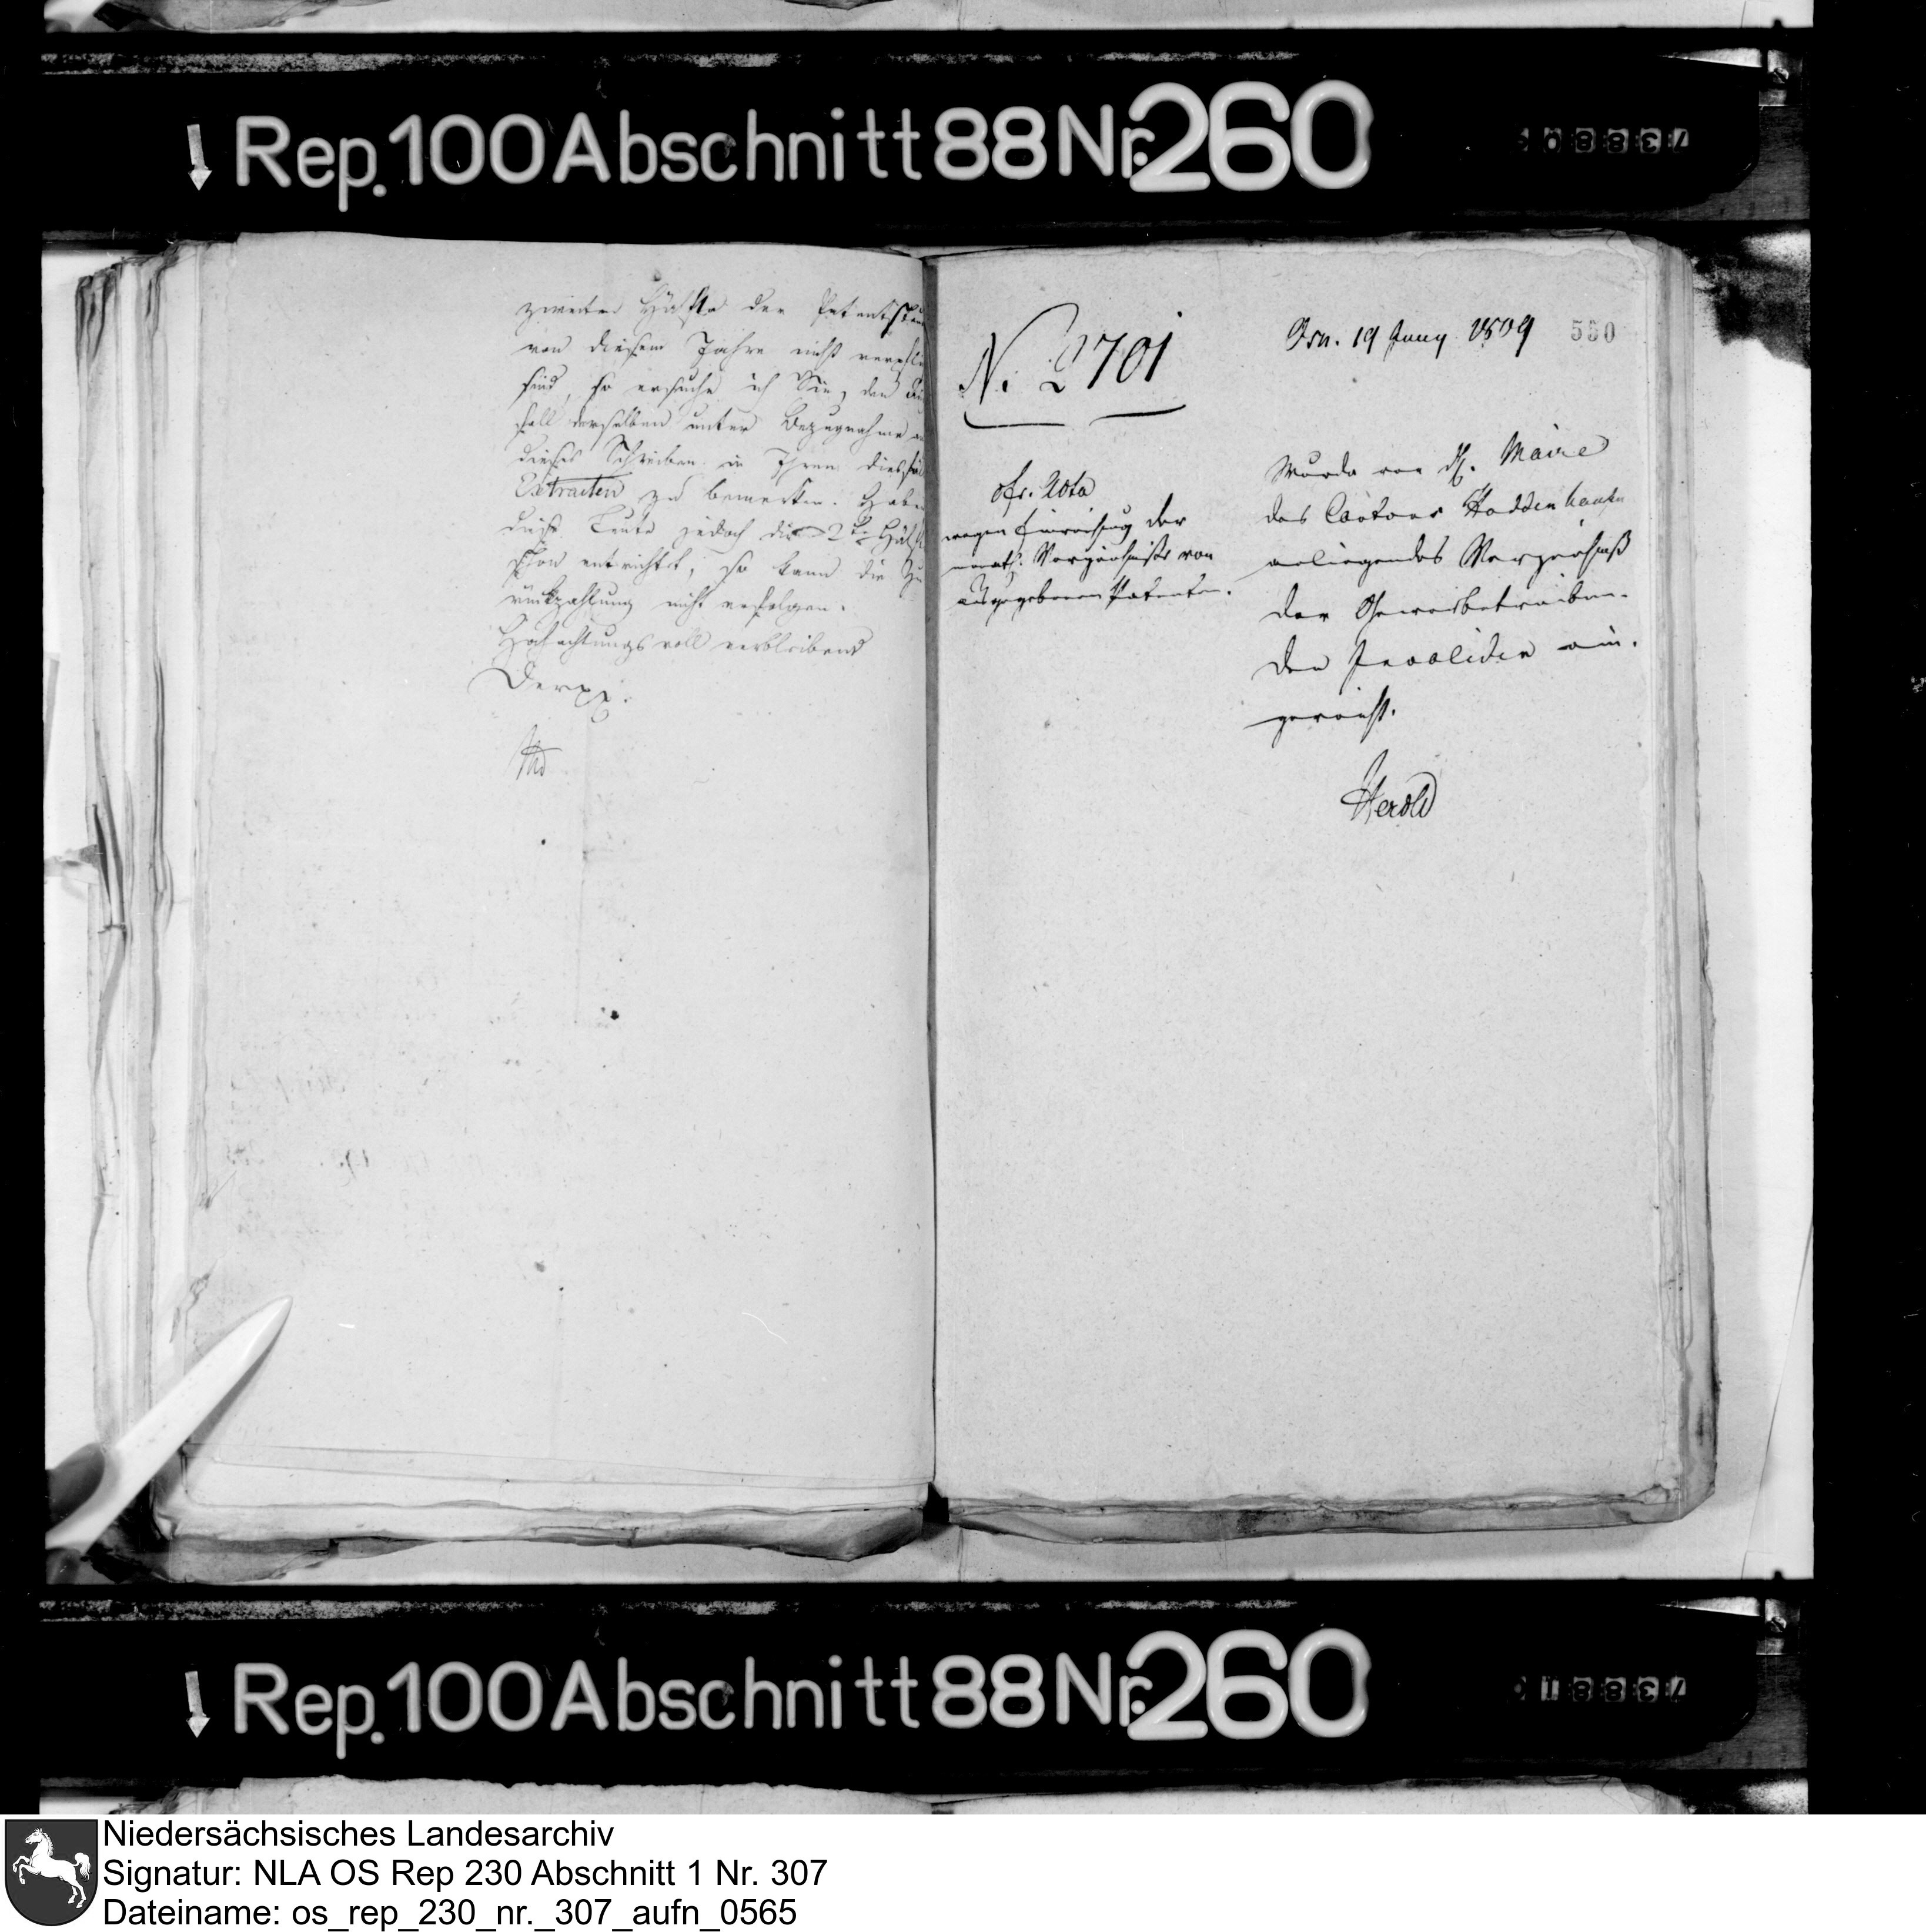 Rep. 100 Abschnitt 88 Nr. 260
zweiten Hälfte der Patentsteu
von diesem Jahre nicht
sind, so ersuche ich Sie, den
fall derselben unter Bezugnahme
dieses Schreiben in Ihren
Extracten zu bemerken. Haben
diese Leute jedoch die 2te Hälfte
schon entrichtet, so kann die Zu
rückzahlung nicht erfolgen.
Hochachtungsvoll verbleibend
Der
N. 2701
cfr. Acta
wegen Einreichung der
monatl. Verzeichnisse von
ausgegebenen Patenten.
Osn. 19 Juny 1809
550
Wurde von H. Maire
des Cantons
anliegendes Verzeichniß
der Gewerbetreiben-
den Invaliden ein-
gereicht.
Herold
Rep. 100 Abschnitt 88 Nr. 260
Niedersächsisches Landesarchiv
Signatur: NLA OS Rep 230 Abschnitt 1 Nr. 307
Dateiname: os_rep_230_nr._307_aufn_0565